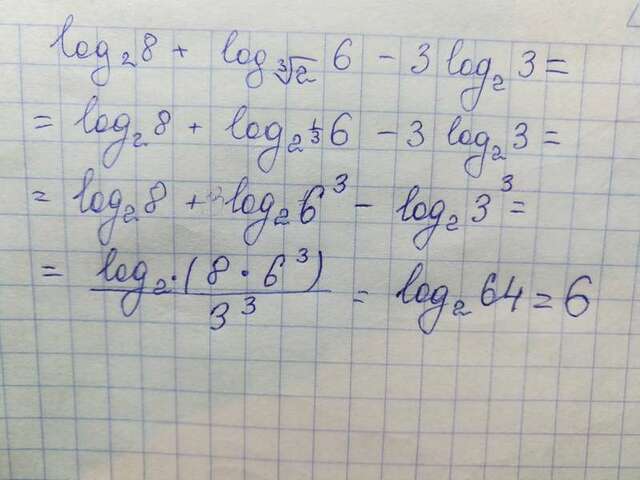 log₂8 + log_∛2 6 − 3 log₂ 3 =
= log₂8 + log_2^⅓ 6 − 3 log₂3 =
= log₂8 + log₂6³ − log₂3³ =
= log₂·(8·6³) / 3³ = log₂64 = 6